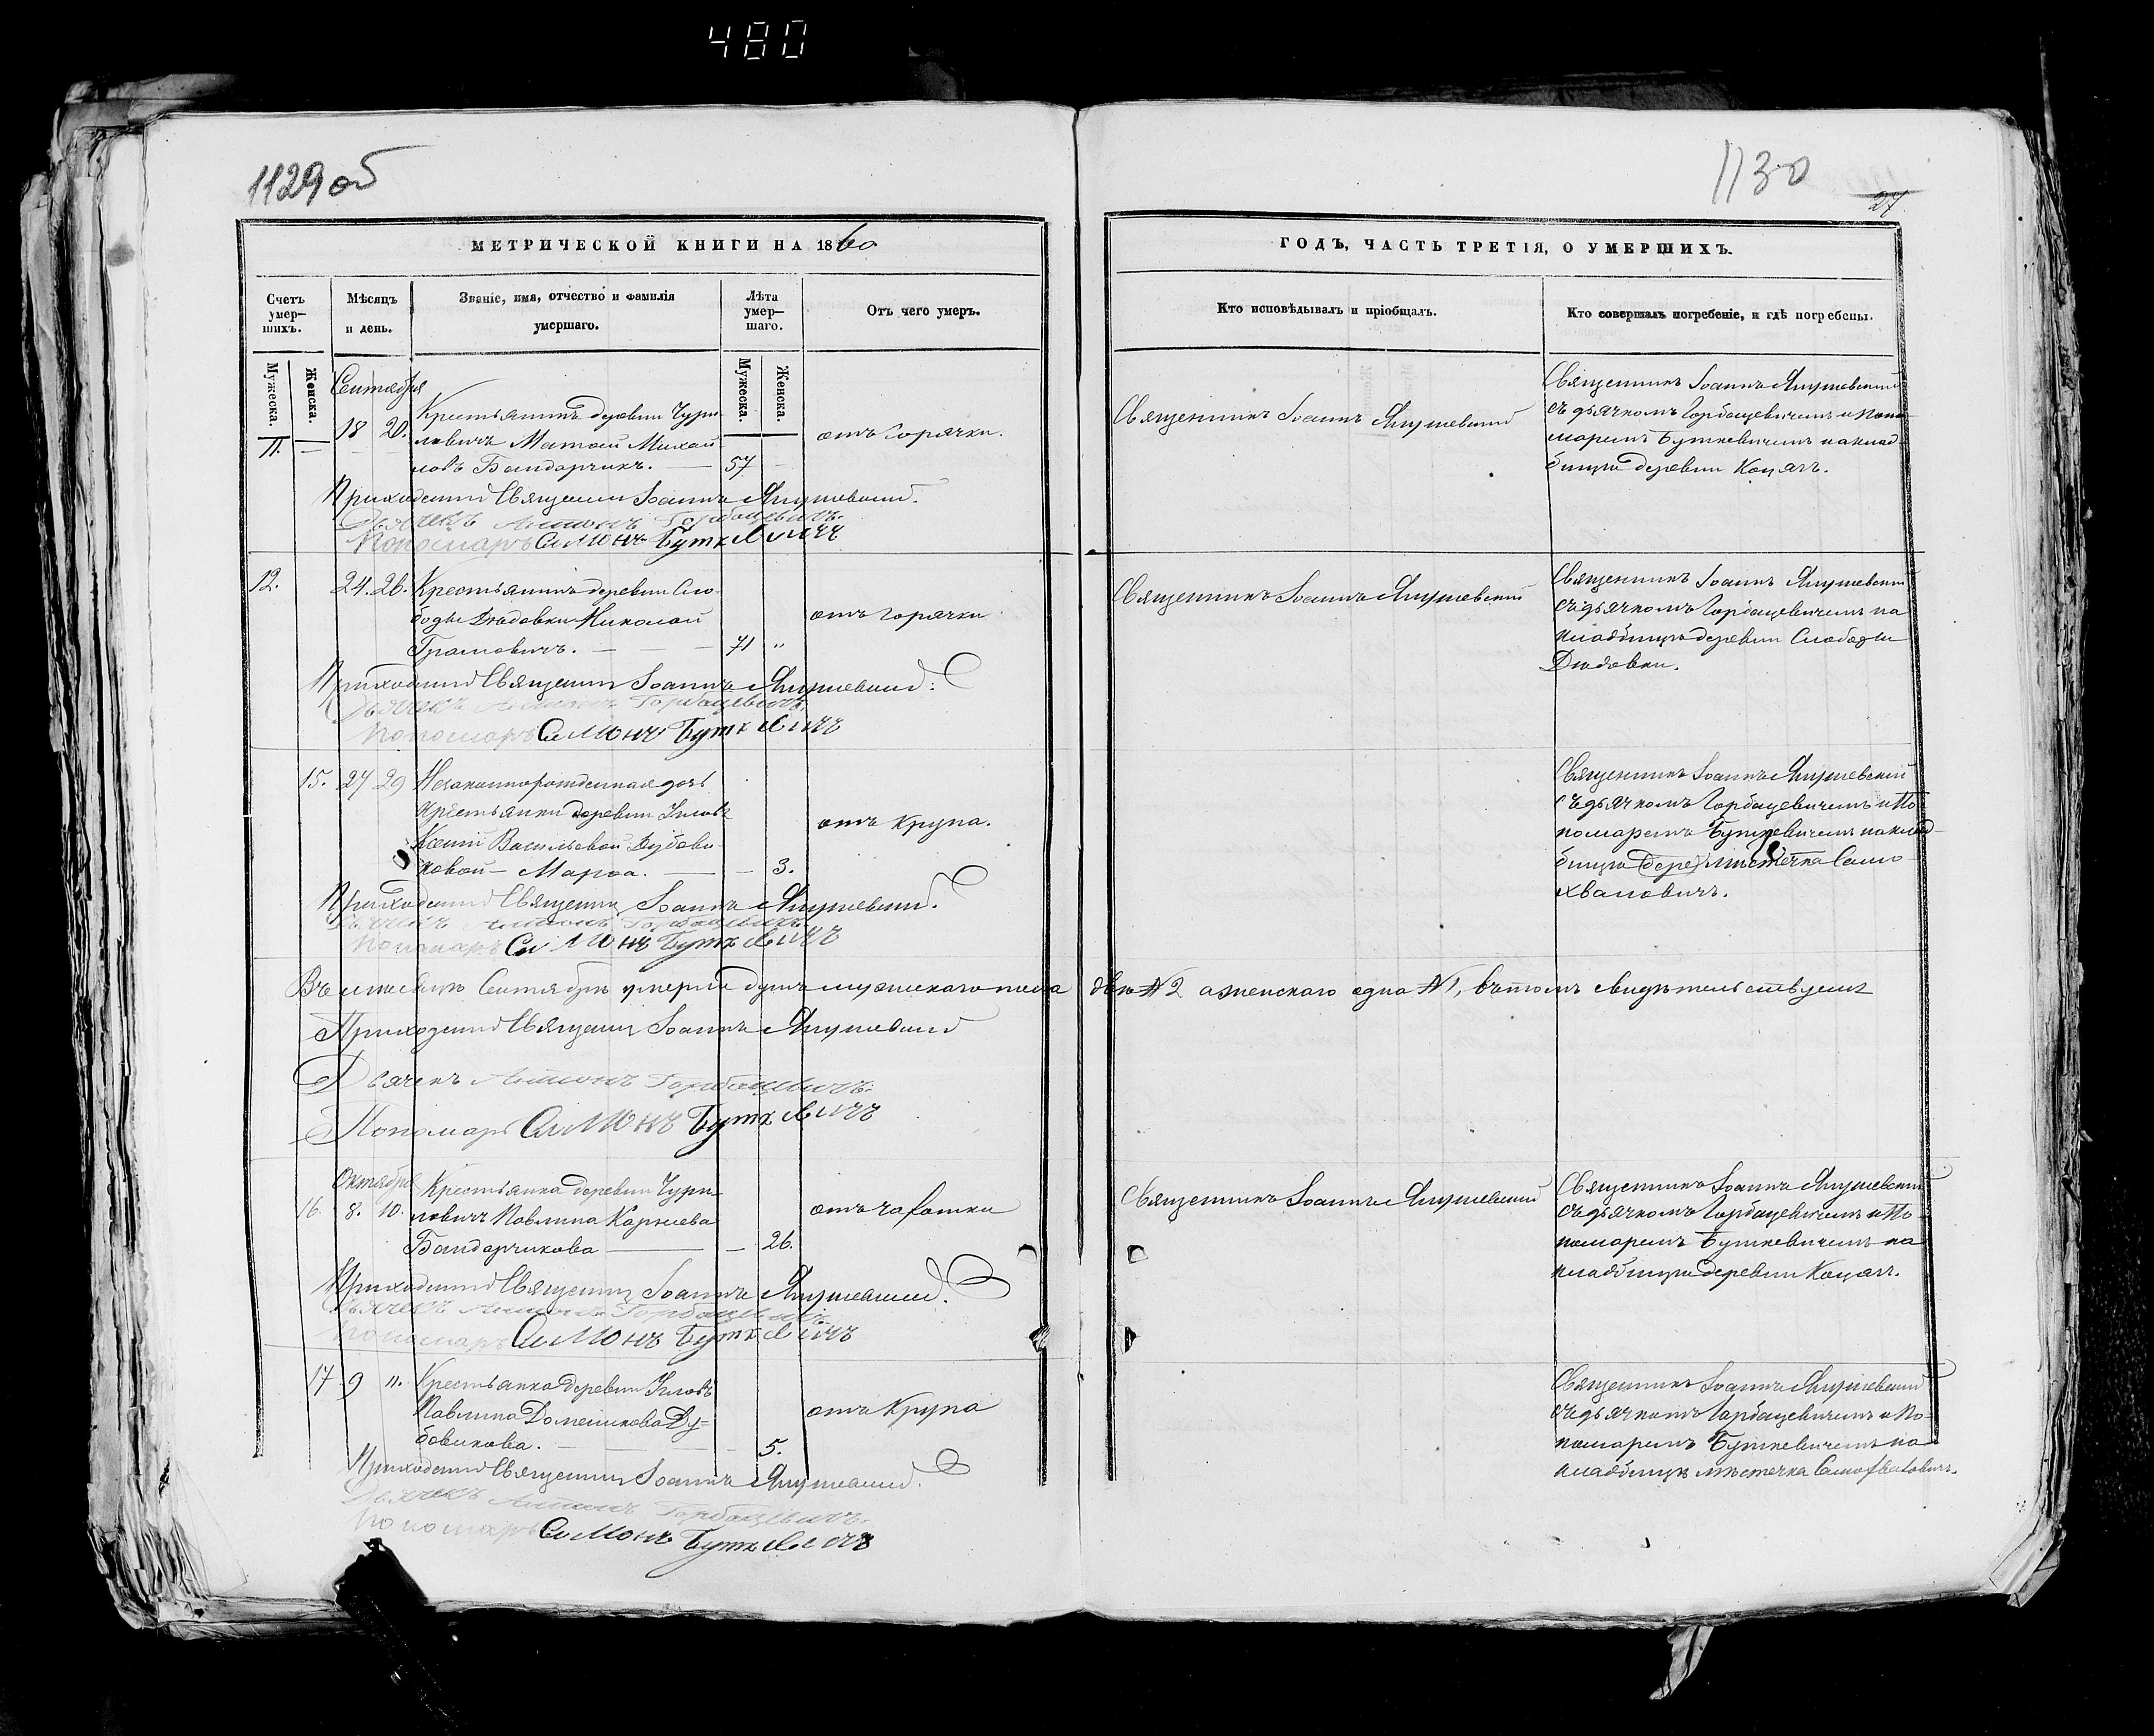 480
1129об
1130
27
МЕТРИЧЕСКОЙ КНИГИ НА 1860
ГОДЪ, ЧАСТЬ ТРЕТІЯ, О УМЕРШИХЪ.
Счетъ умер-
шихъ.
Мѣсяцъ
и день.
Званіе, имя, отчество и фамилія
умершаго.
Лѣта
умер-
шаго.
Отъ чего умеръ.
Кто исповѣдывалъ и пріобщалъ.
Кто совершалъ погребеніе, и гдѣ погребены.
Мужеска.
Женска.
Мужеска.
Женска.
Сентября
11. — 18 20. Крестьянинъ деревни Чури-
ловичъ Матѳей Михай-
ловъ Бандарчикъ. — 57 -
отъ горячки.
Священникъ Іоаннъ Янушевскій
Священникъ Іоаннъ Янушевскій
съ дьячкомъ Горбацевичемъ и поно-
маремъ Буткевичемъ на клад-
бищѣ деревни Коцяхъ.
Приходскій Священникъ Іоаннъ Янушевскій.
Дьячекъ Антонъ Горбацевичъ.
Пономарь Симонъ Буткевичъ
12. 24. 26. Крестьянинъ деревни Сло-
боды Дюдовки Николай
Грамовичъ. — — — 71 "
отъ горячки
Священникъ Іоаннъ Янушевскій
Священникъ Іоаннъ Янушевскій
съ дьячкомъ Горбацевичемъ на
кладбищѣ деревни Слободы
Дюдовки.
Приходскій Священникъ Іоаннъ Янушевскій.
Дьячекъ Антонъ Горбацевичъ.
Пономарь Симонъ Буткевичъ
15. 27 29 Незаконнорожденная дочь
крестьянки деревни
Ксеніи Васильевой Дубови-
ковой — Марѳа. — — 3.
отъ крупа.
Священникъ Іоаннъ Янушевскій
съ дьячкомъ Горбацевичемъ и По-
номаремъ Буткевичемъ на клад-
бищѣ (дере) мѣстечка Само-
хваловичъ.
Приходскій Священникъ Іоаннъ Янушевскій.
Дьячекъ Антонъ Горбацевичъ.
Пономарь Симонъ Буткевичъ
Въ мѣсяцѣ Сентябрѣ умерли душъ мужескаго пола двѣ № 2 а женскаго одна № 1, въ томъ свидѣтельствуемъ
Приходскій Священникъ Іоаннъ Янушевскій
Дьячекъ Антонъ Горбацевичъ.
Пономарь Симонъ Буткевичъ
Октября
16. 8. 10. Крестьянка деревни Чури-
ловичъ Павлина Карнѣева
Бандарчикова — — 26.
отъ чахотки
Священникъ Іоаннъ Янушевскій
Священникъ Іоаннъ Янушевскій
съ дьячкомъ Горбацевичемъ и По-
номаремъ Буткевичемъ на
кладбищѣ деревни Коцяхъ.
Приходскій Священникъ Іоаннъ Янушевскій.
Дьячекъ Антонъ Горбацевичъ.
Пономарь Симонъ Буткевичъ
17 9 11. Крестьянка деревни
Павлина Доменикова Ду-
бовикова. — — — 5.
отъ крупа
Священникъ Іоаннъ Янушевскій
съ дьячкомъ Горбацевичемъ и По-
номаремъ Буткевичемъ на
кладбищѣ мѣстечка Самохваловичъ.
Приходскій Священникъ Іоаннъ Янушевскій.
Дьячекъ Антонъ Горбацевичъ.
Пономарь Симонъ Буткевичъ